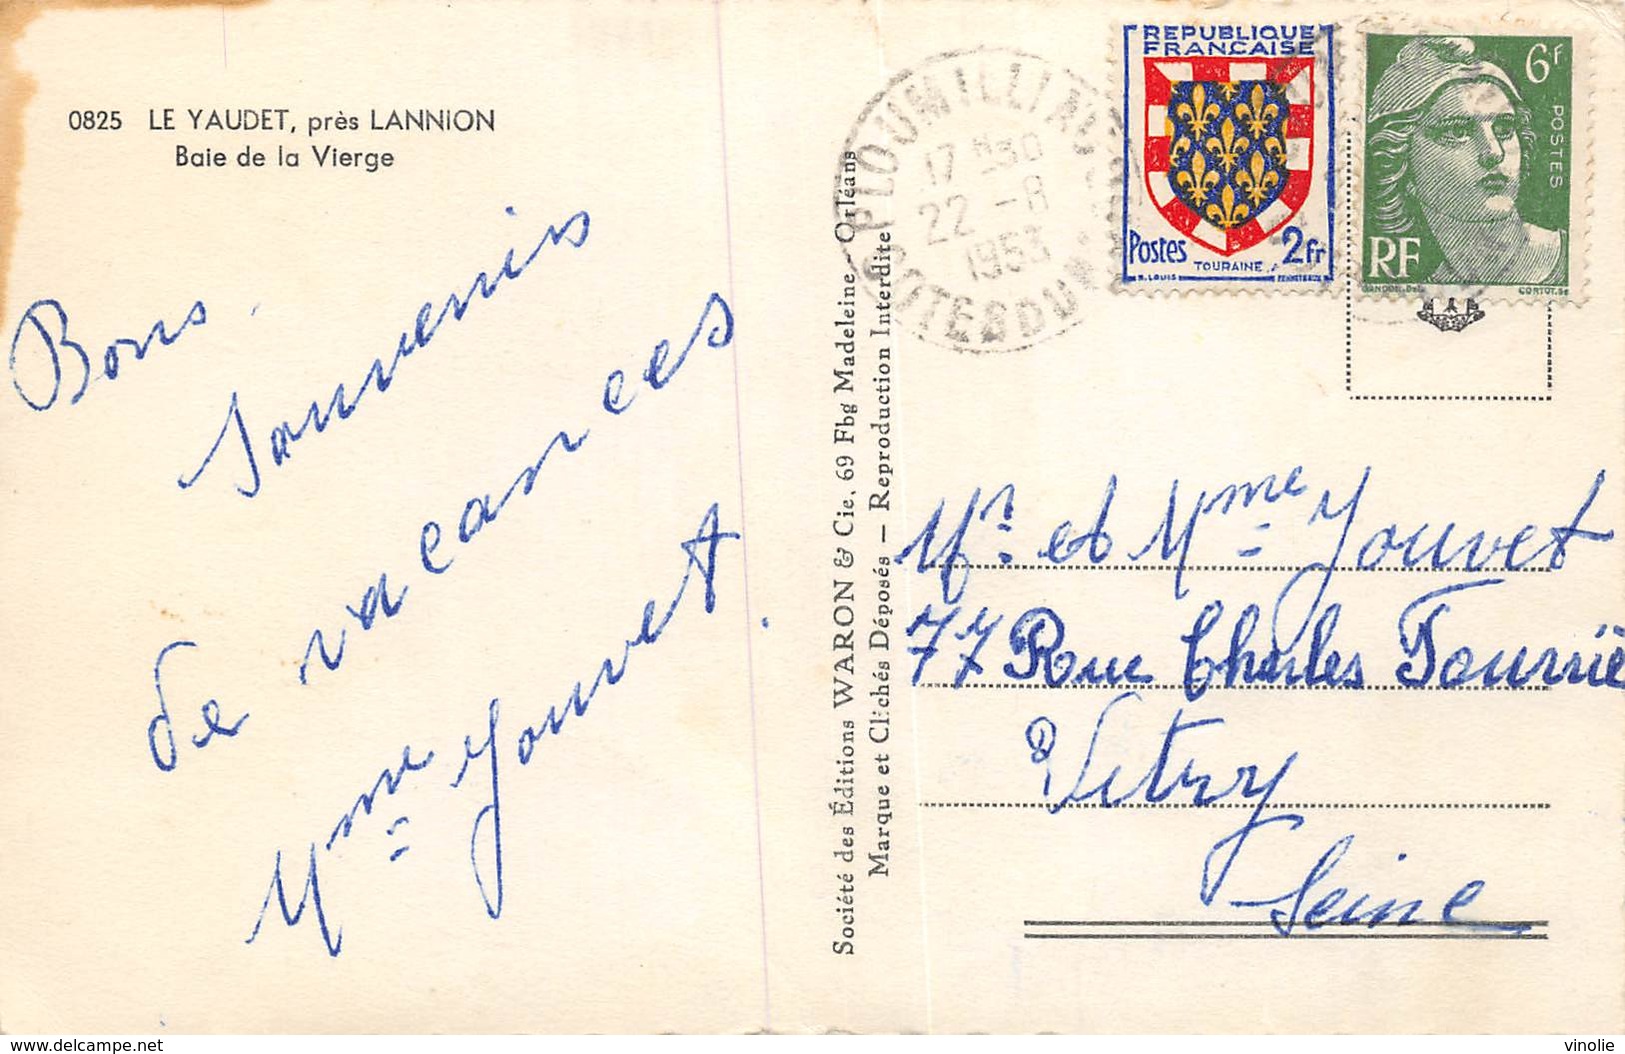 0825 LE YAUDET, près LANNION
Baie de la Vierge
Bons
Souvenirs
de vacances
Mme Jouvet.
Société des Éditions WARON & Cie. 69 Fbg Madeleine Orléans
Marque et Clichés Déposés — Reproduction Interdite
PLOUMILLIAU
17 H30
22 - 8
1953
COTES DU N.
REPUBLIQUE
FRANÇAISE
Postes 2fr
TOURAINE
R. LOUIS
6f
POSTES
RF
GANDON.Del
CORTOT.Sc
Mr. et Mme Jouvet
77 Rue Charles Fourriè
Vitry
Seine
delcampe.net
vinolie